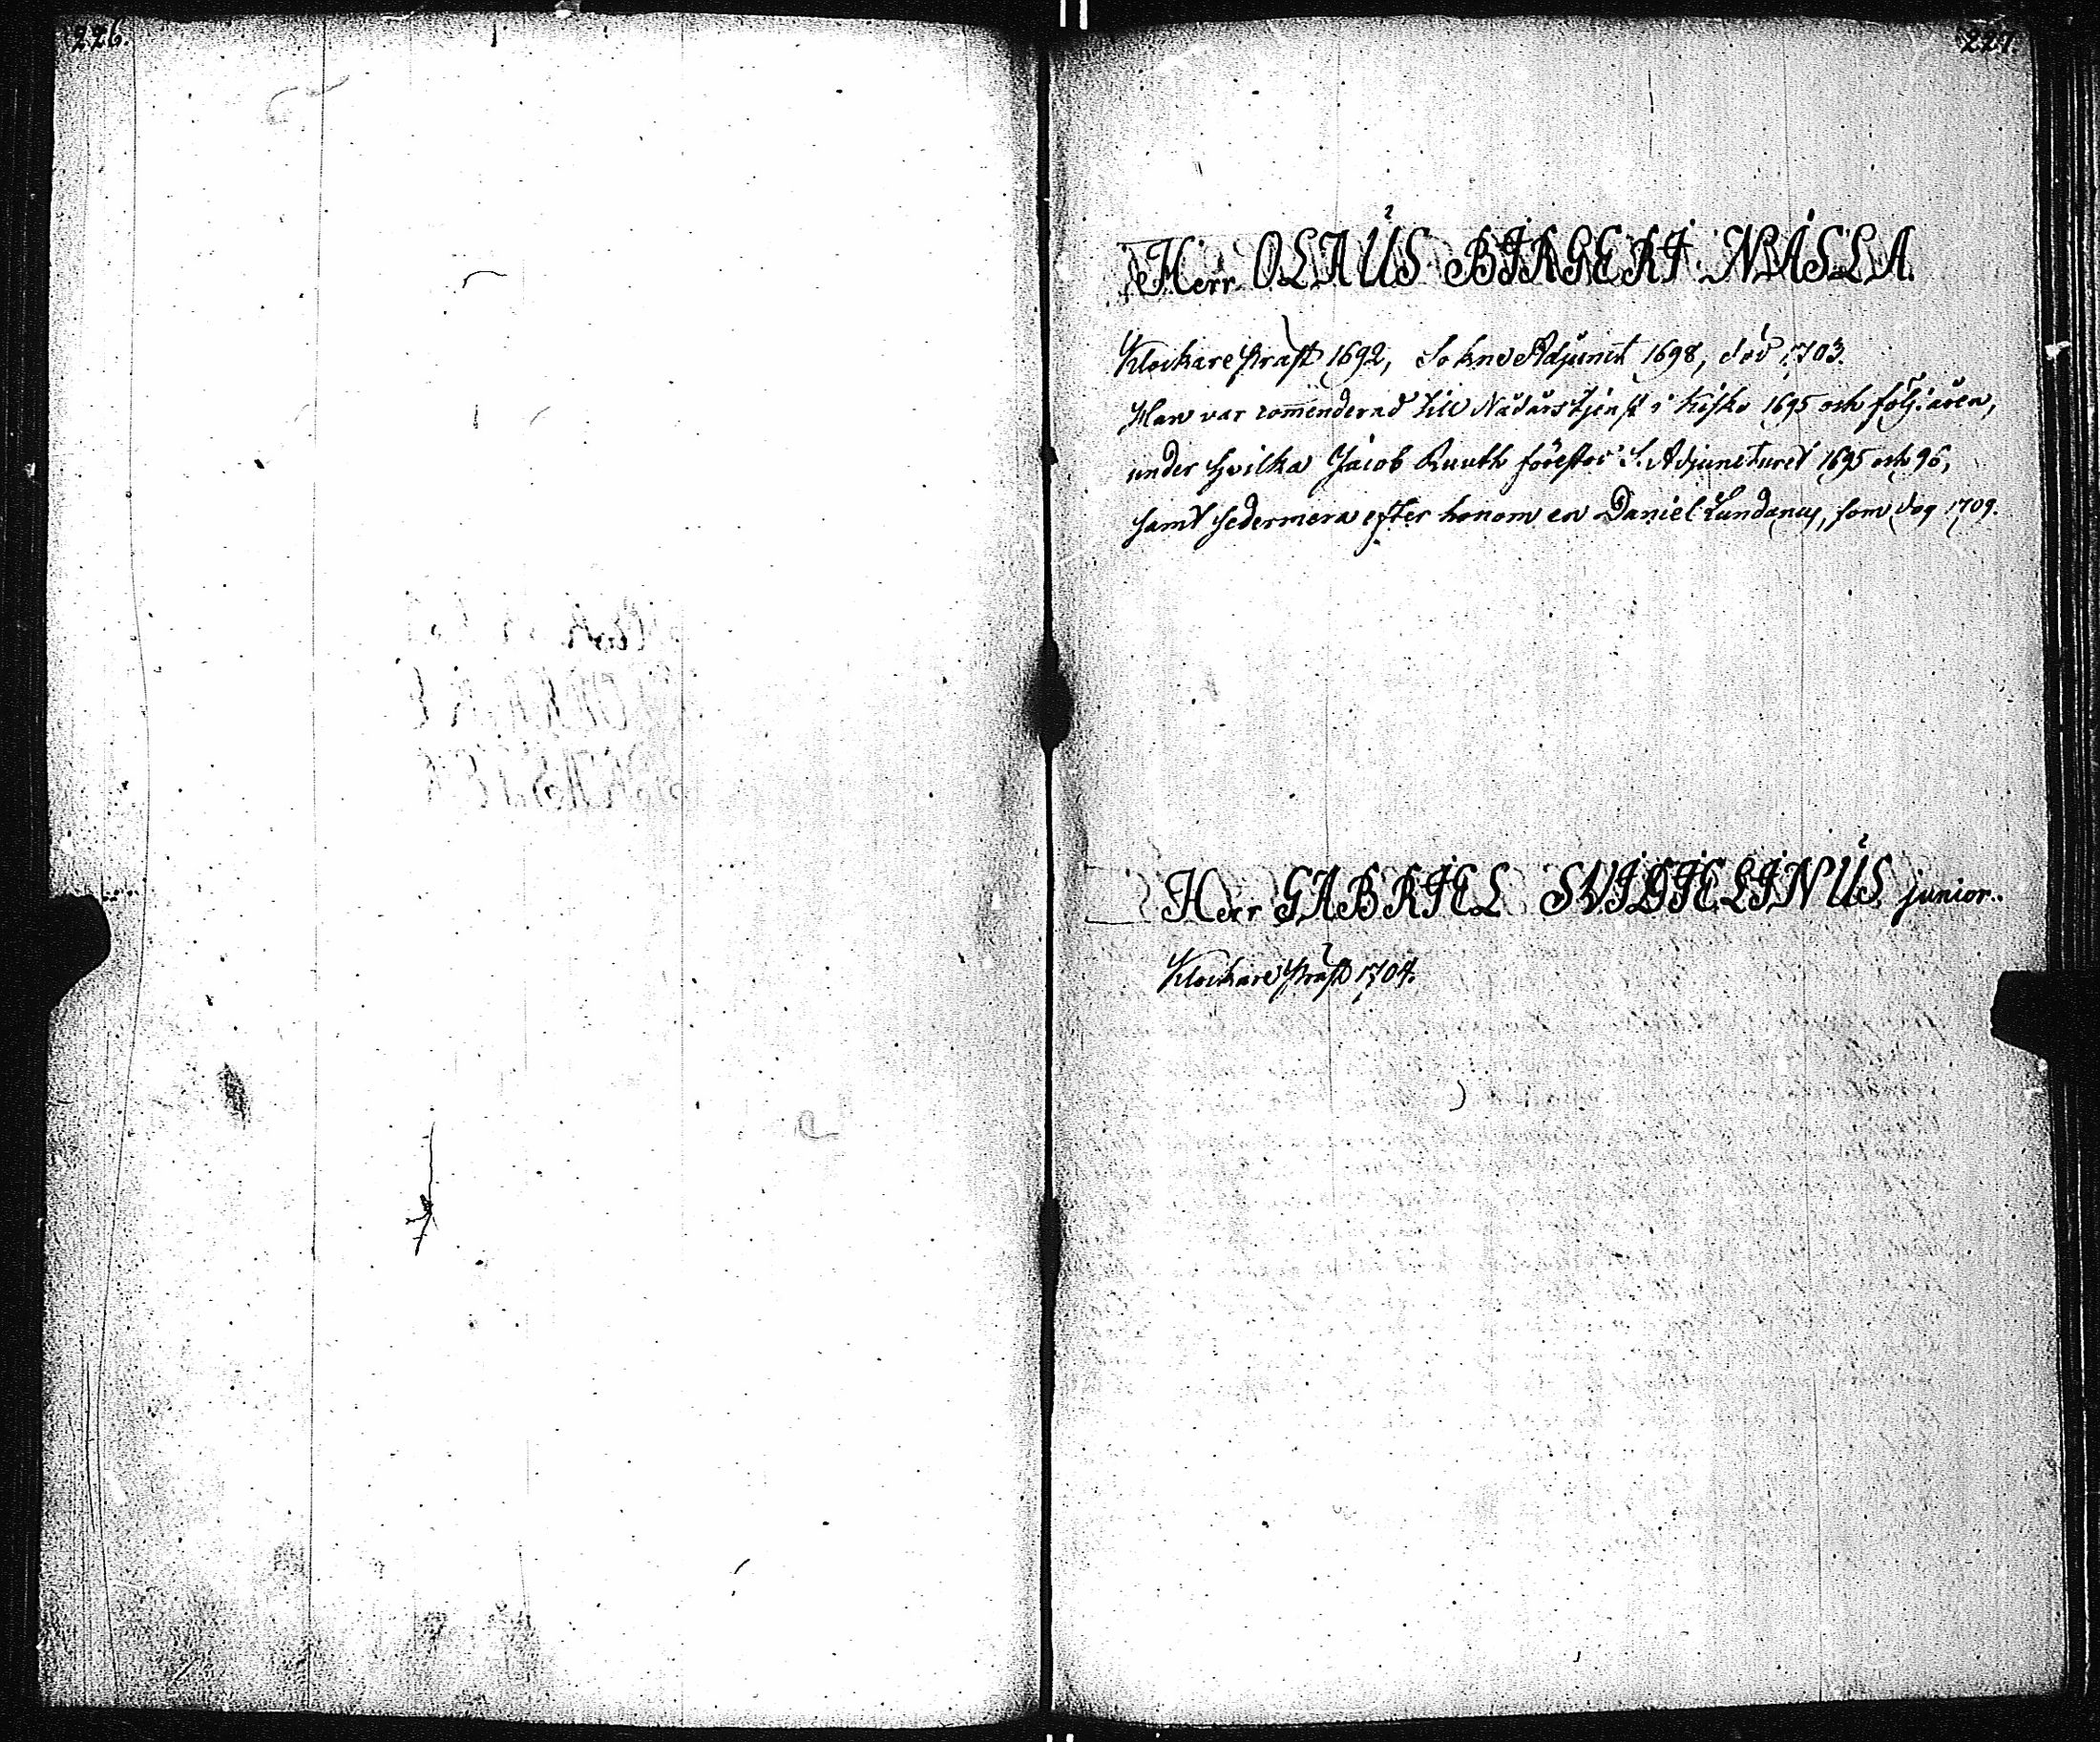 226.
227.
Herr OLAUS BIRGERI NASLA.
Klockare Präst 1692, Sokne Adjunct 1698, död 1703.
Han var com̄enderad till Nådårs tjenst i Kisko 1695 och följ. åren,
under hvilka Jacob Ruuth förestod S. Adjuncturet 1695 och 96,
samt sedermera efter honom en Daniel Lundanus, som dog 1709.
Herr GABRIEL SVIDIELINUS junior.
Klockare Präst 1704.